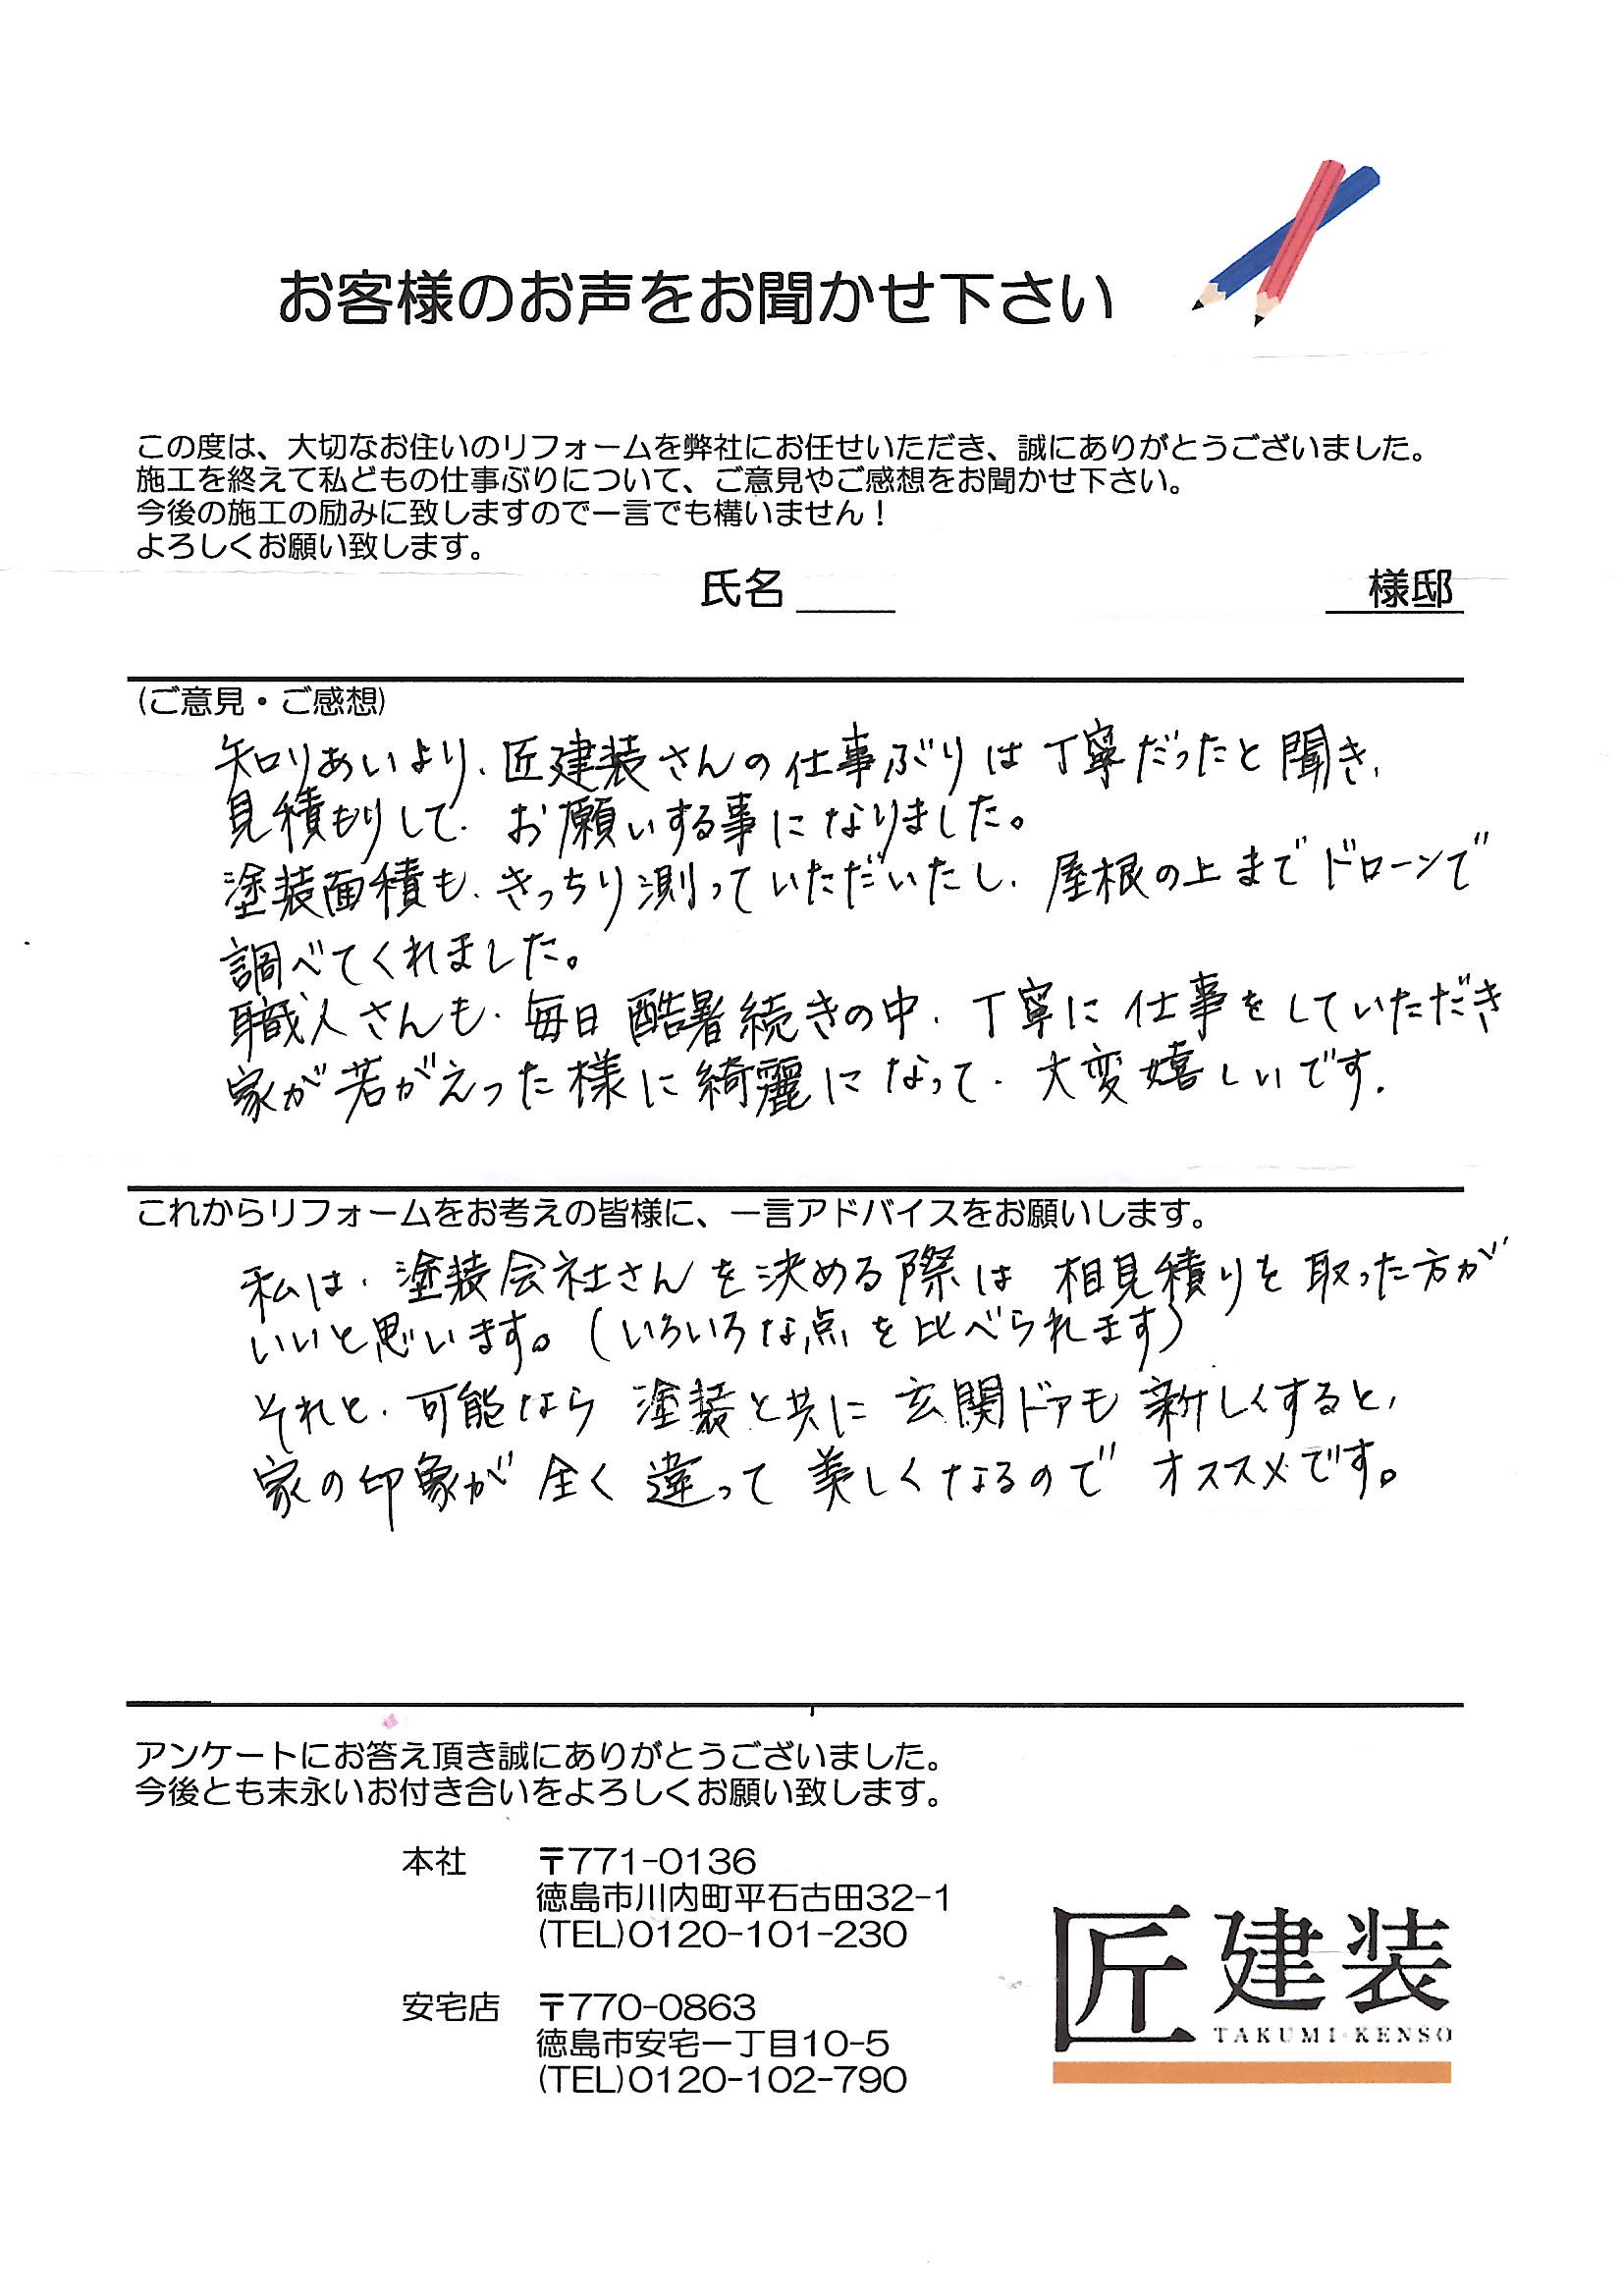 お客様のお声をお聞かせ下さい
この度は、大切なお住いのリフォームを弊社にお任せいただき、誠にありがとうございました。
施工を終えて私どもの仕事ぶりについて、ご意見やご感想をお聞かせ下さい。
今後の施工の励みに致しますので一言でも構いません！
よろしくお願い致します。
氏名 様邸
(ご意見・ご感想)
知りあいより、匠建装さんの仕事ぶりは丁寧だったと聞き、
見積もりして、お願いする事になりました。
塗装面積も、きっちり測っていただいたし、屋根の上までドローンで
調べてくれました。
職人さんも、毎日酷暑続きの中、丁寧に仕事をしていただき
家が若がえった様に綺麗になって、大変嬉しいです。
これからリフォームをお考えの皆様に、一言アドバイスをお願いします。
私は、塗装会社さんを決める際は相見積りを取った方が
いいと思います。(いろいろな点を比べられます)
それと、可能なら塗装と共に玄関ドアも新しくすると、
家の印象が全く違って美しくなるのでオススメです。
アンケートにお答え頂き誠にありがとうございました。
今後とも末永いお付き合いをよろしくお願い致します。
本社 〒771-0136
徳島市川内町平石古田32-1
(TEL)0120-101-230
安宅店 〒770-0863
徳島市安宅一丁目10-5
(TEL)0120-102-790
匠建装
TAKUMI・KENSO